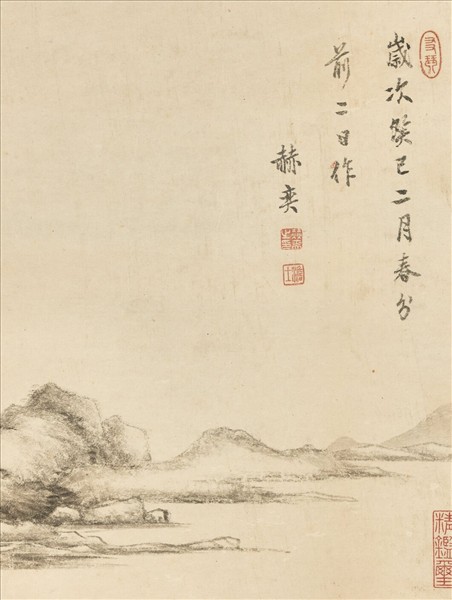 歲次癸巳二月春分
前二日作
赫奕
精鑑璽